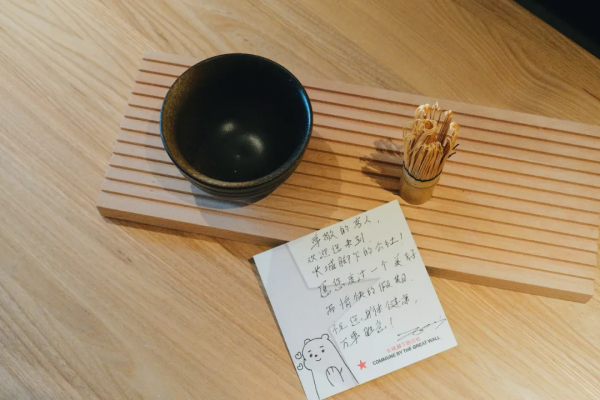 尊敬的客人，
欢迎您来到
长城脚下的公社！
愿您度过一个美好
而愉快的假期.
祝您身体健康，
万事胜意！
长城脚下的公社
COMMUNE BY THE GREAT WALL